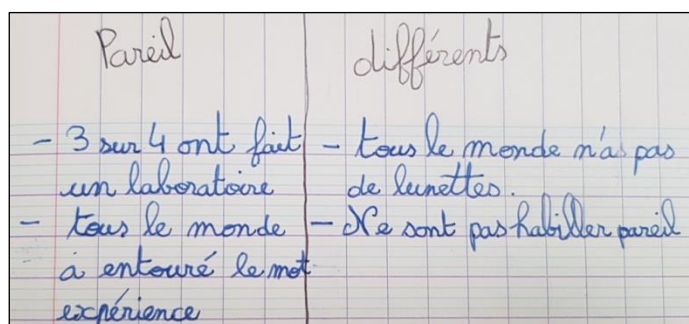 Pareil
- 3 sur 4 ont fait
un laboratoire
- tous le monde
à entouré le mot
expérience
différents
- tous le monde n'as pas
de lunettes.
- Ne sont pas habiller pareil